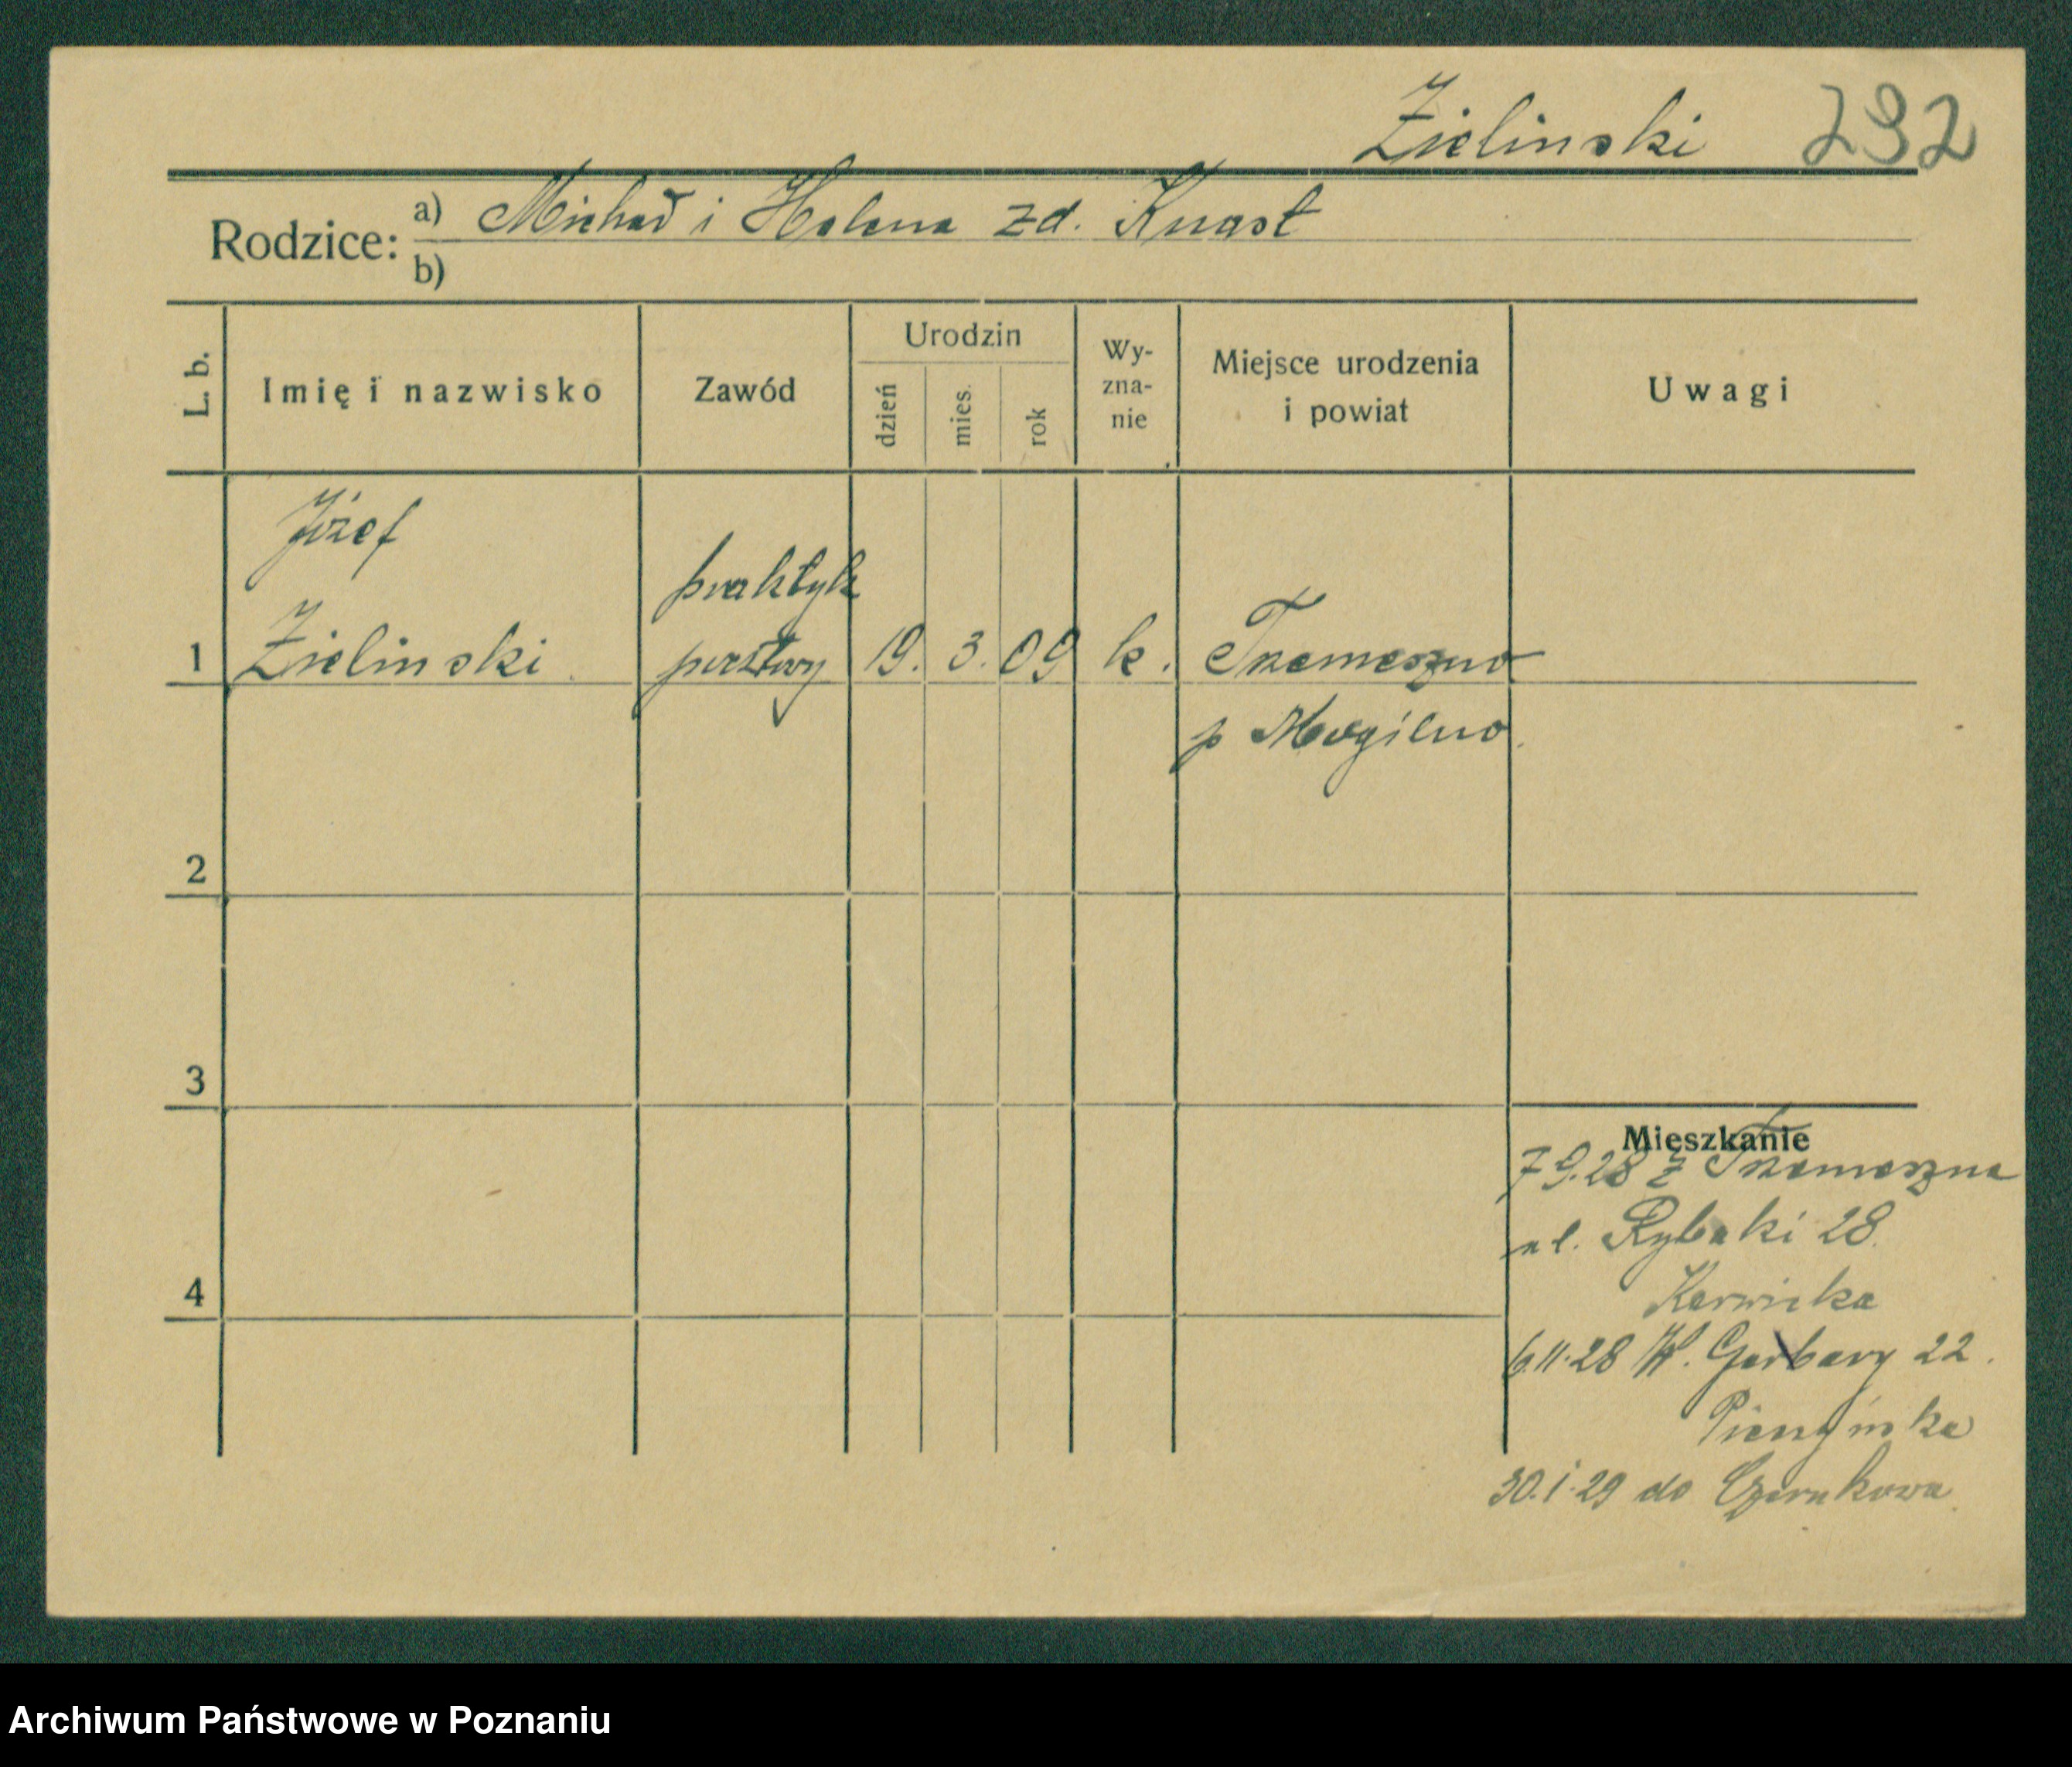 Zielinski 292
Rodzice: a) Michał i Helena zd. Knast
b)
L. b. Imię i nazwisko Zawód Urodzin dzień mies. rok Wy-zna-nie Miejsce urodzenia i powiat Uwagi
Józef
praktyk
1 Zielinski pocztowy 19. 3. 09 k. Trzemeszno
p Mogilno.
2
3
Mieszkanie
7 9.28 z Trzemeszna
4 ul. Rybaki 28.
6.11.28 W. Garbary 22.
30.1.29 do Czarnkowa
Archiwum Państwowe w Poznaniu